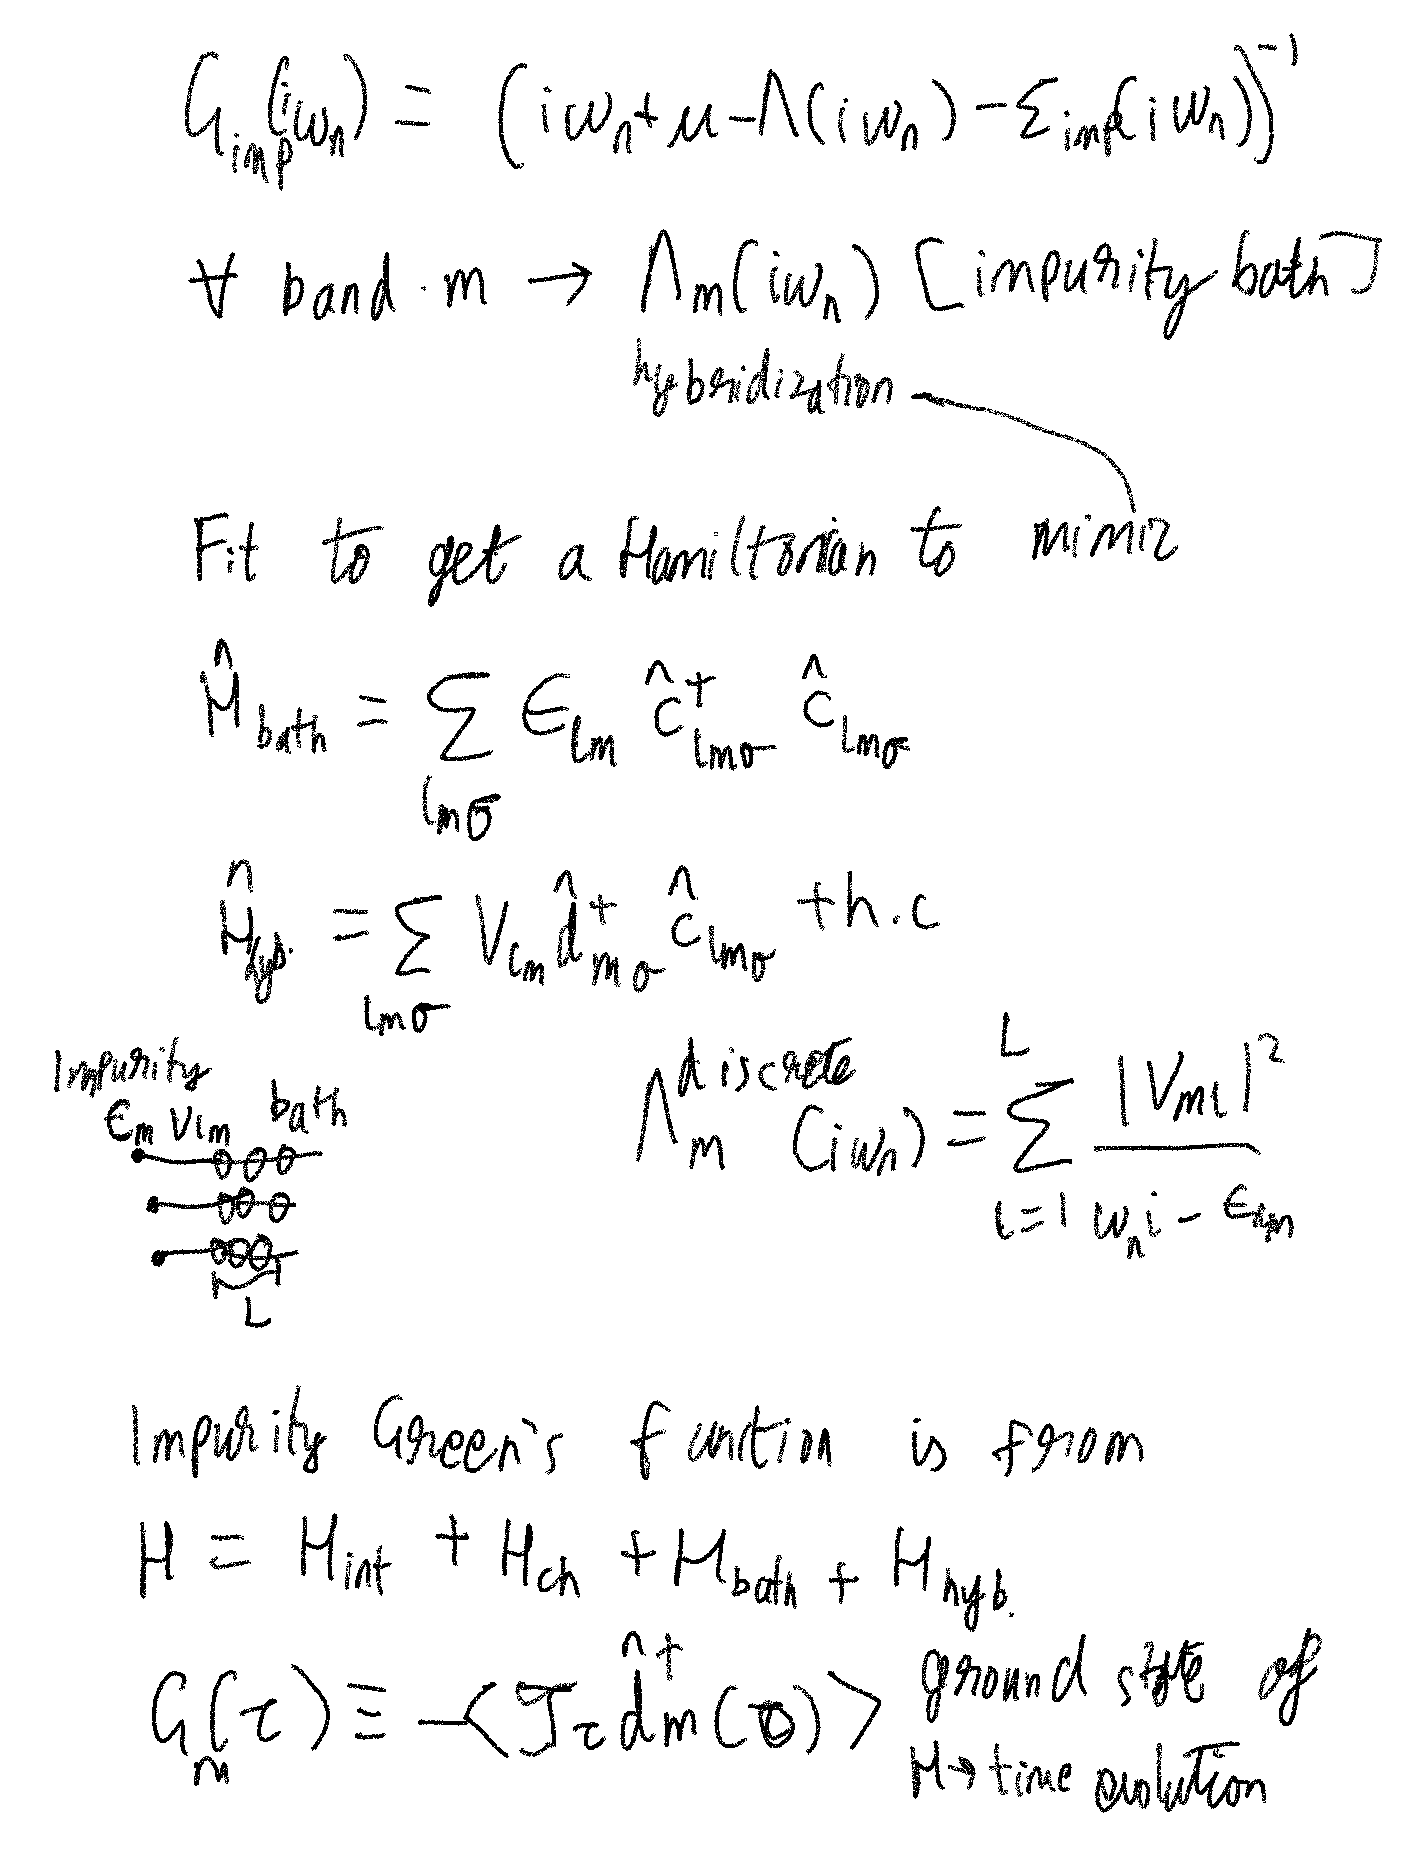 G_imp(iω_n) = (iω_n + μ - Λ(iω_n) - Σ_imp(iω_n))^-1
∀ band . m → Λ_m(iω_n) [impurity bath]
hybridization
Fit to get a Hamiltonian to mimic
Ĥ_bath = Σ_lmσ ϵ_lm ĉ^†_lmσ ĉ_lmσ
Ĥ_hyb. = Σ_lmσ V_lm d̂^†_mσ ĉ_lmσ + h.c
Impurity
ϵ_m V_lm bath
L
Λ_m^discrete (iω_n) = Σ_{l=1}^L |V_ml|^2 / (ω_n i - ϵ_lm)
Impurity Green's function is from
H = H_int + H_ch + H_bath + H_hyb.
G_m(τ) ≡ -<T_τ d̂^†_m(0)> ground state of
H → time evolution